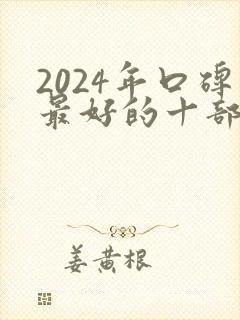 2024年口碑
最好的十部
姜黄根